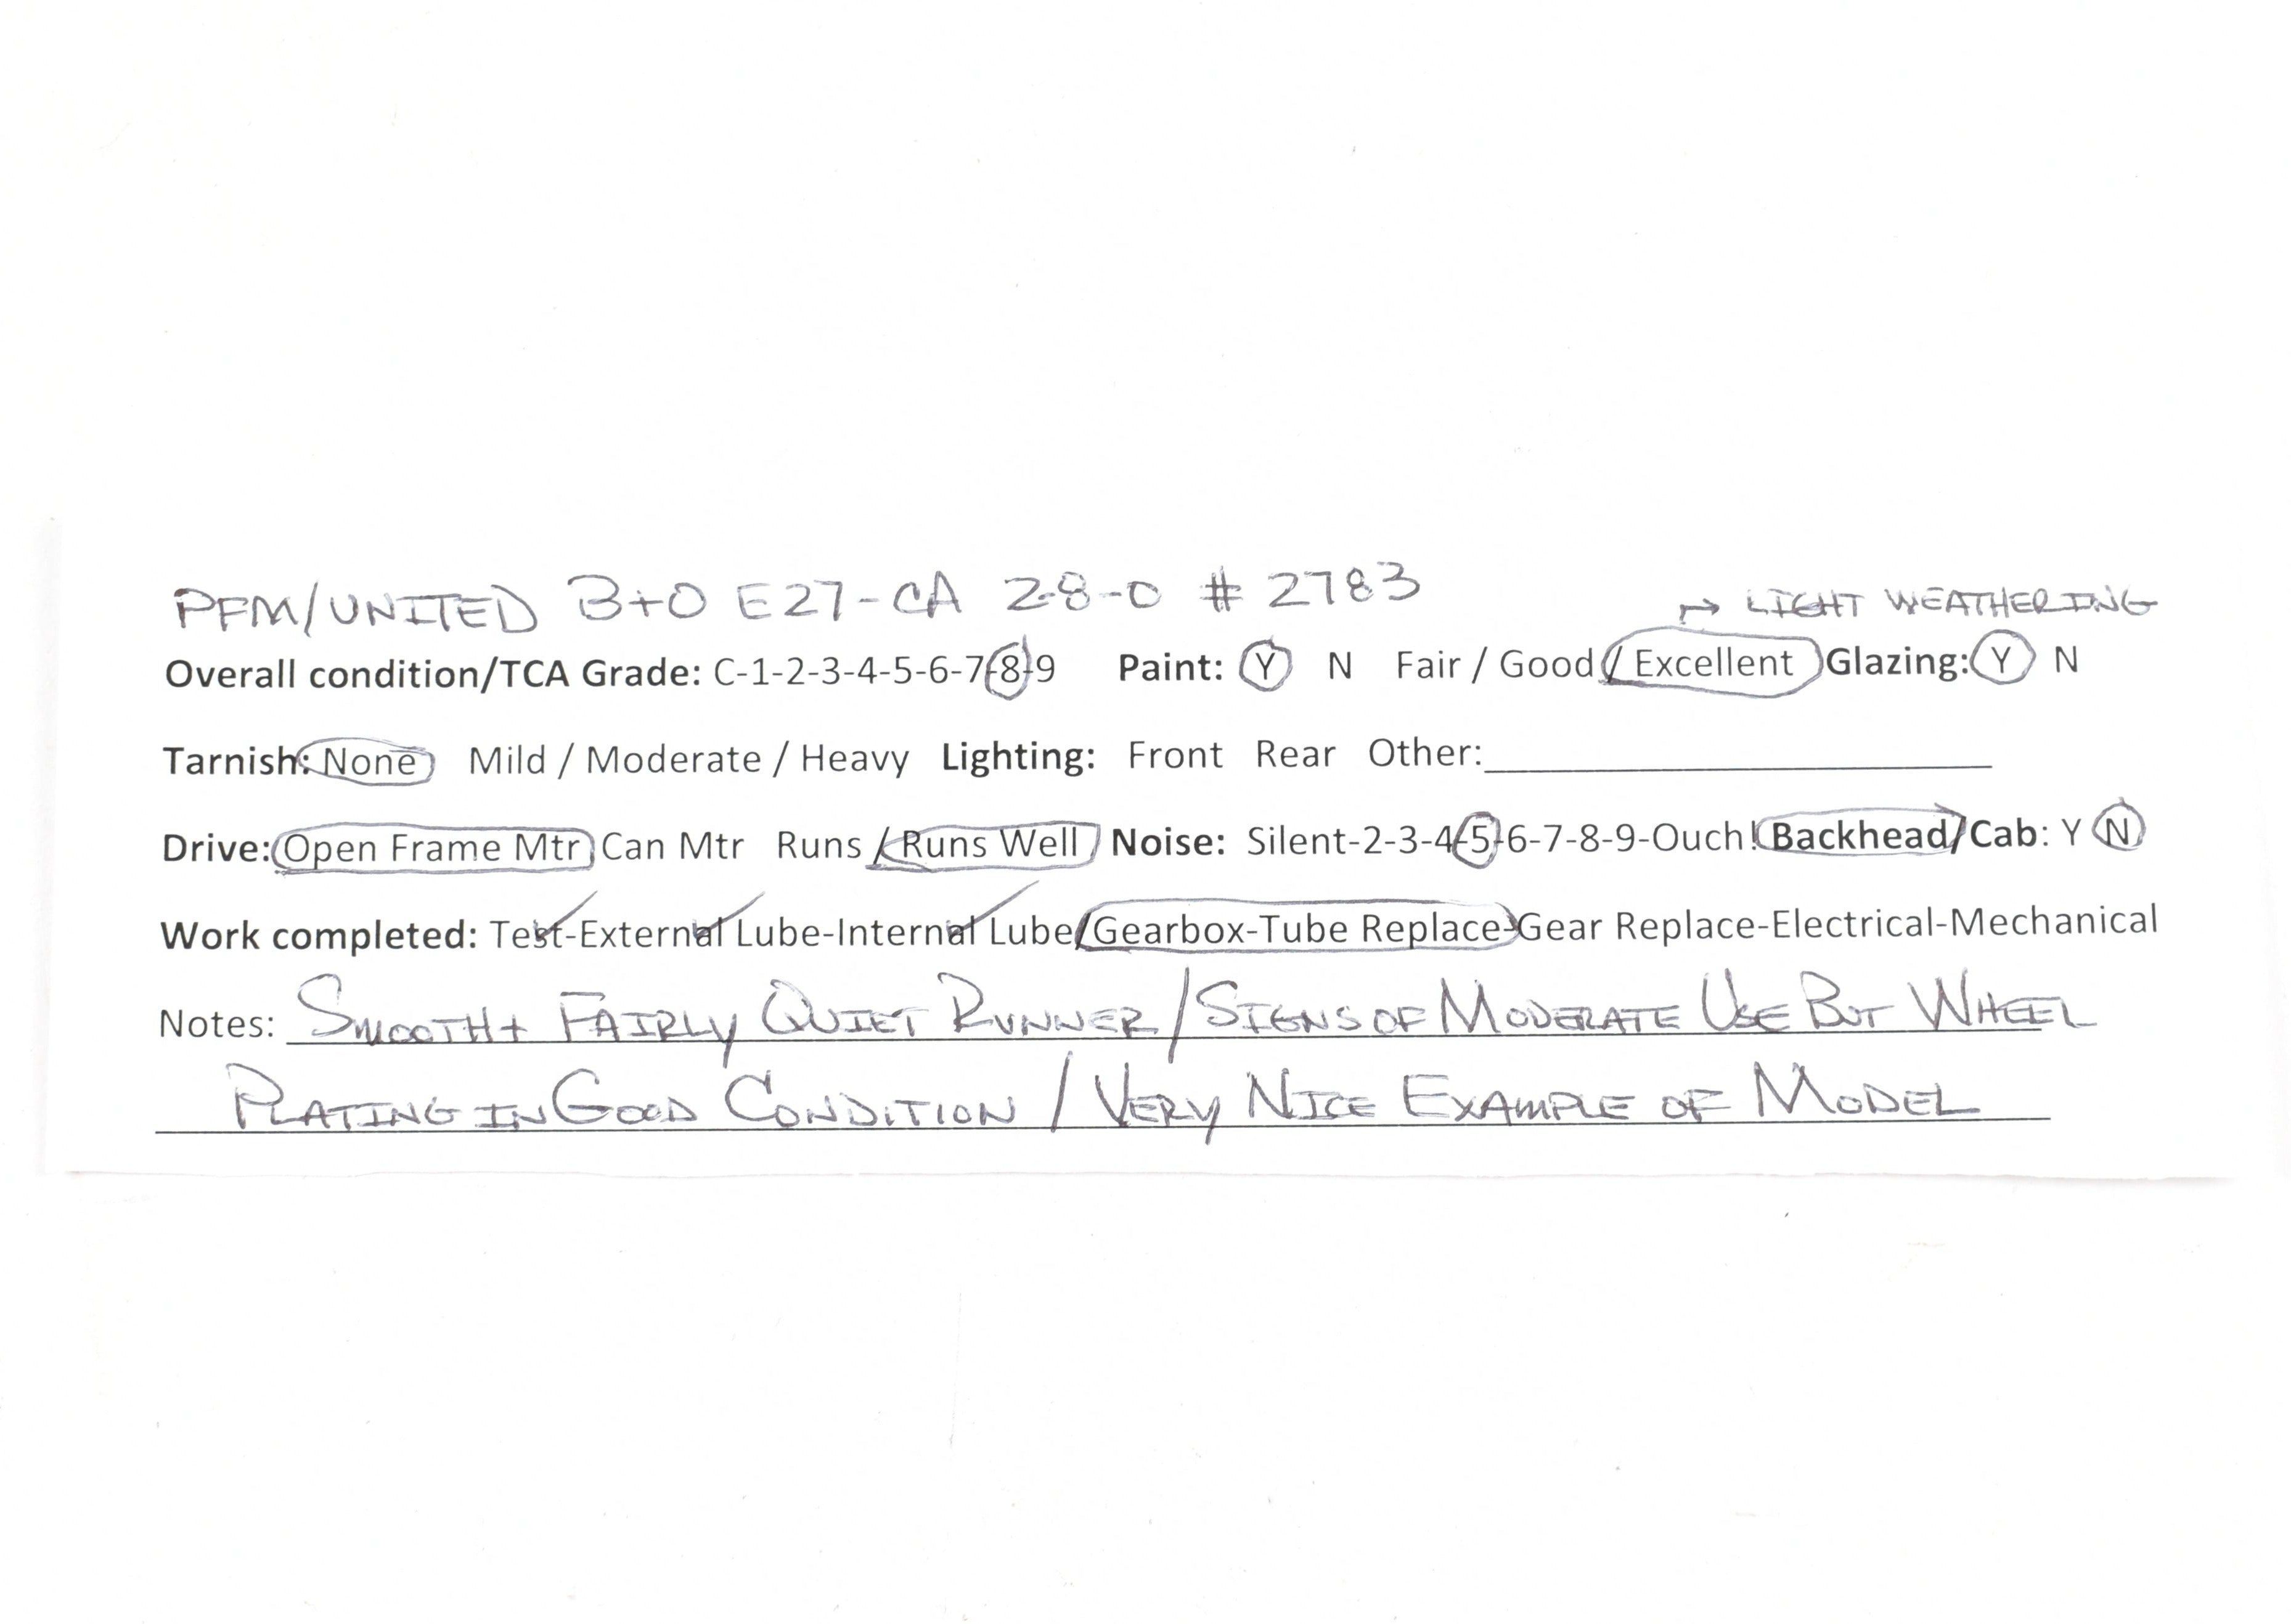 PFM/UNITED B+O E27-CA 2-8-0 # 2783
→ LIGHT WEATHERING
Overall condition/TCA Grade: C-1-2-3-4-5-6-7-8-9 Paint: Y N Fair / Good / Excellent Glazing: Y N
Tarnish: None Mild / Moderate / Heavy Lighting: Front Rear Other:
Drive: Open Frame Mtr Can Mtr Runs / Runs Well Noise: Silent-2-3-4-5-6-7-8-9-Ouch! Backhead/Cab: Y N
Work completed: Test-External Lube-Internal Lube/Gearbox-Tube Replace-Gear Replace-Electrical-Mechanical
Notes: SMOOTH + FAIRLY QUIET RUNNER / SIGNS OF MODERATE USE BUT WHEEL
PLATING IN GOOD CONDITION / VERY NICE EXAMPLE OF MODEL